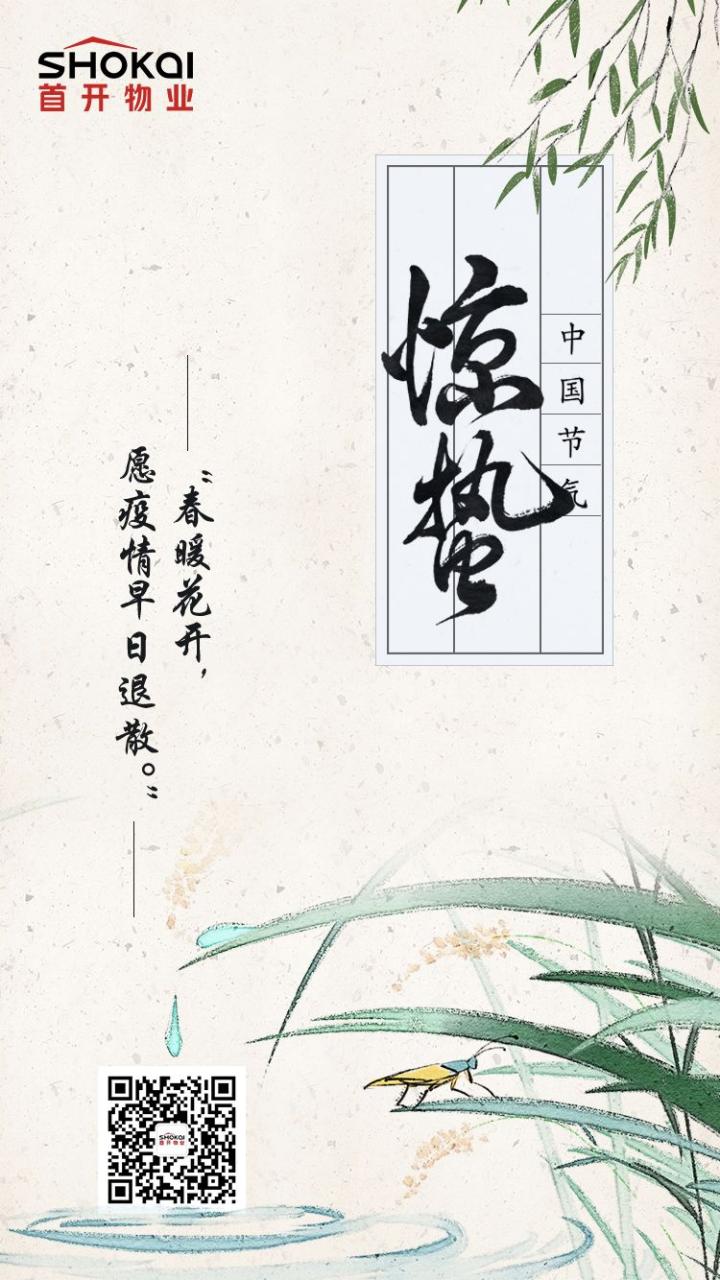 SHOKAI
首开物业
中国节气
惊蛰
“春暖花开，
愿疫情早日退散。”
SHOKAI
首开物业